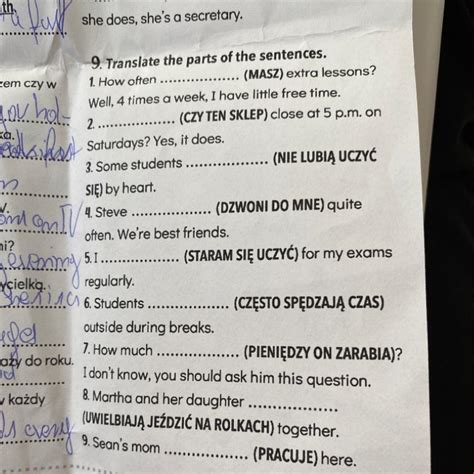 th.
she does, she's a secretary.
9. Translate the parts of the sentences.
1. How often .................. (MASZ) extra lessons?
Well, 4 times a week, I have little free time.
2. .................. (CZY TEN SKLEP) close at 5 p.m. on
Saturdays? Yes, it does.
3. Some students .................. (NIE LUBIĄ UCZYĆ
SIĘ) by heart.
4. Steve .................. (DZWONI DO MNE) quite
often. We're best friends.
5. I .................. (STARAM SIĘ UCZYĆ) for my exams
regularly.
6. Students .................. (CZĘSTO SPĘDZAJĄ CZAS)
outside during breaks.
7. How much .................. (PIENIĘDZY ON ZARABIA)?
I don't know, you should ask him this question.
8. Martha and her daughter ..................
(UWIELBIAJĄ JEŹDZIĆ NA ROLKACH) together.
9. Sean's mom .................. (PRACUJE) here.
zem czy w
ka.
w.
ni?
ycielką.
aży do roku.
w każdy